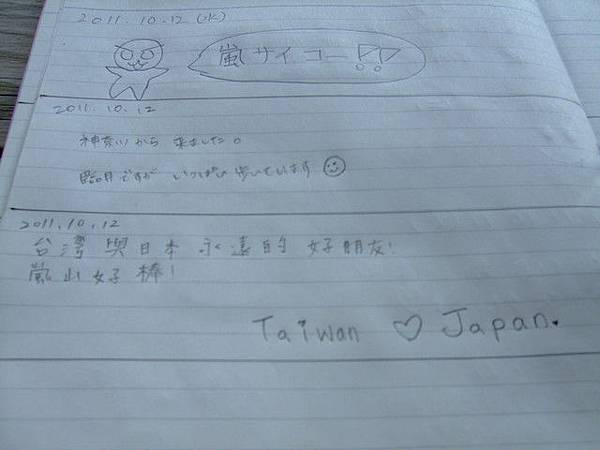 2011.10.12 (水)
嵐サイコー!!
2011.10.12
神奈川から来ました。
臨月ですが いっぱい歩いています
2011.10.12
台灣與日本 永遠的 好朋友!
嵐山好棒!
Taiwan ♡ Japan.